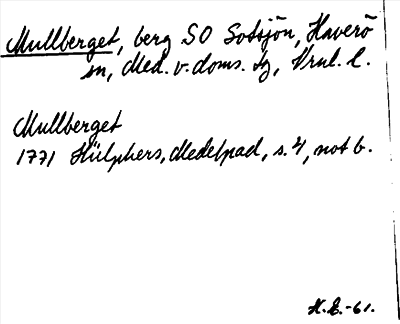 Mullberget, berg SO Sotsjön, Haverö
sn, Med. v. doms. tg, Vrnl. l.
Mullberget
1771 Hülphers, Medelpad, s. 4, not b.
H.E.-61.